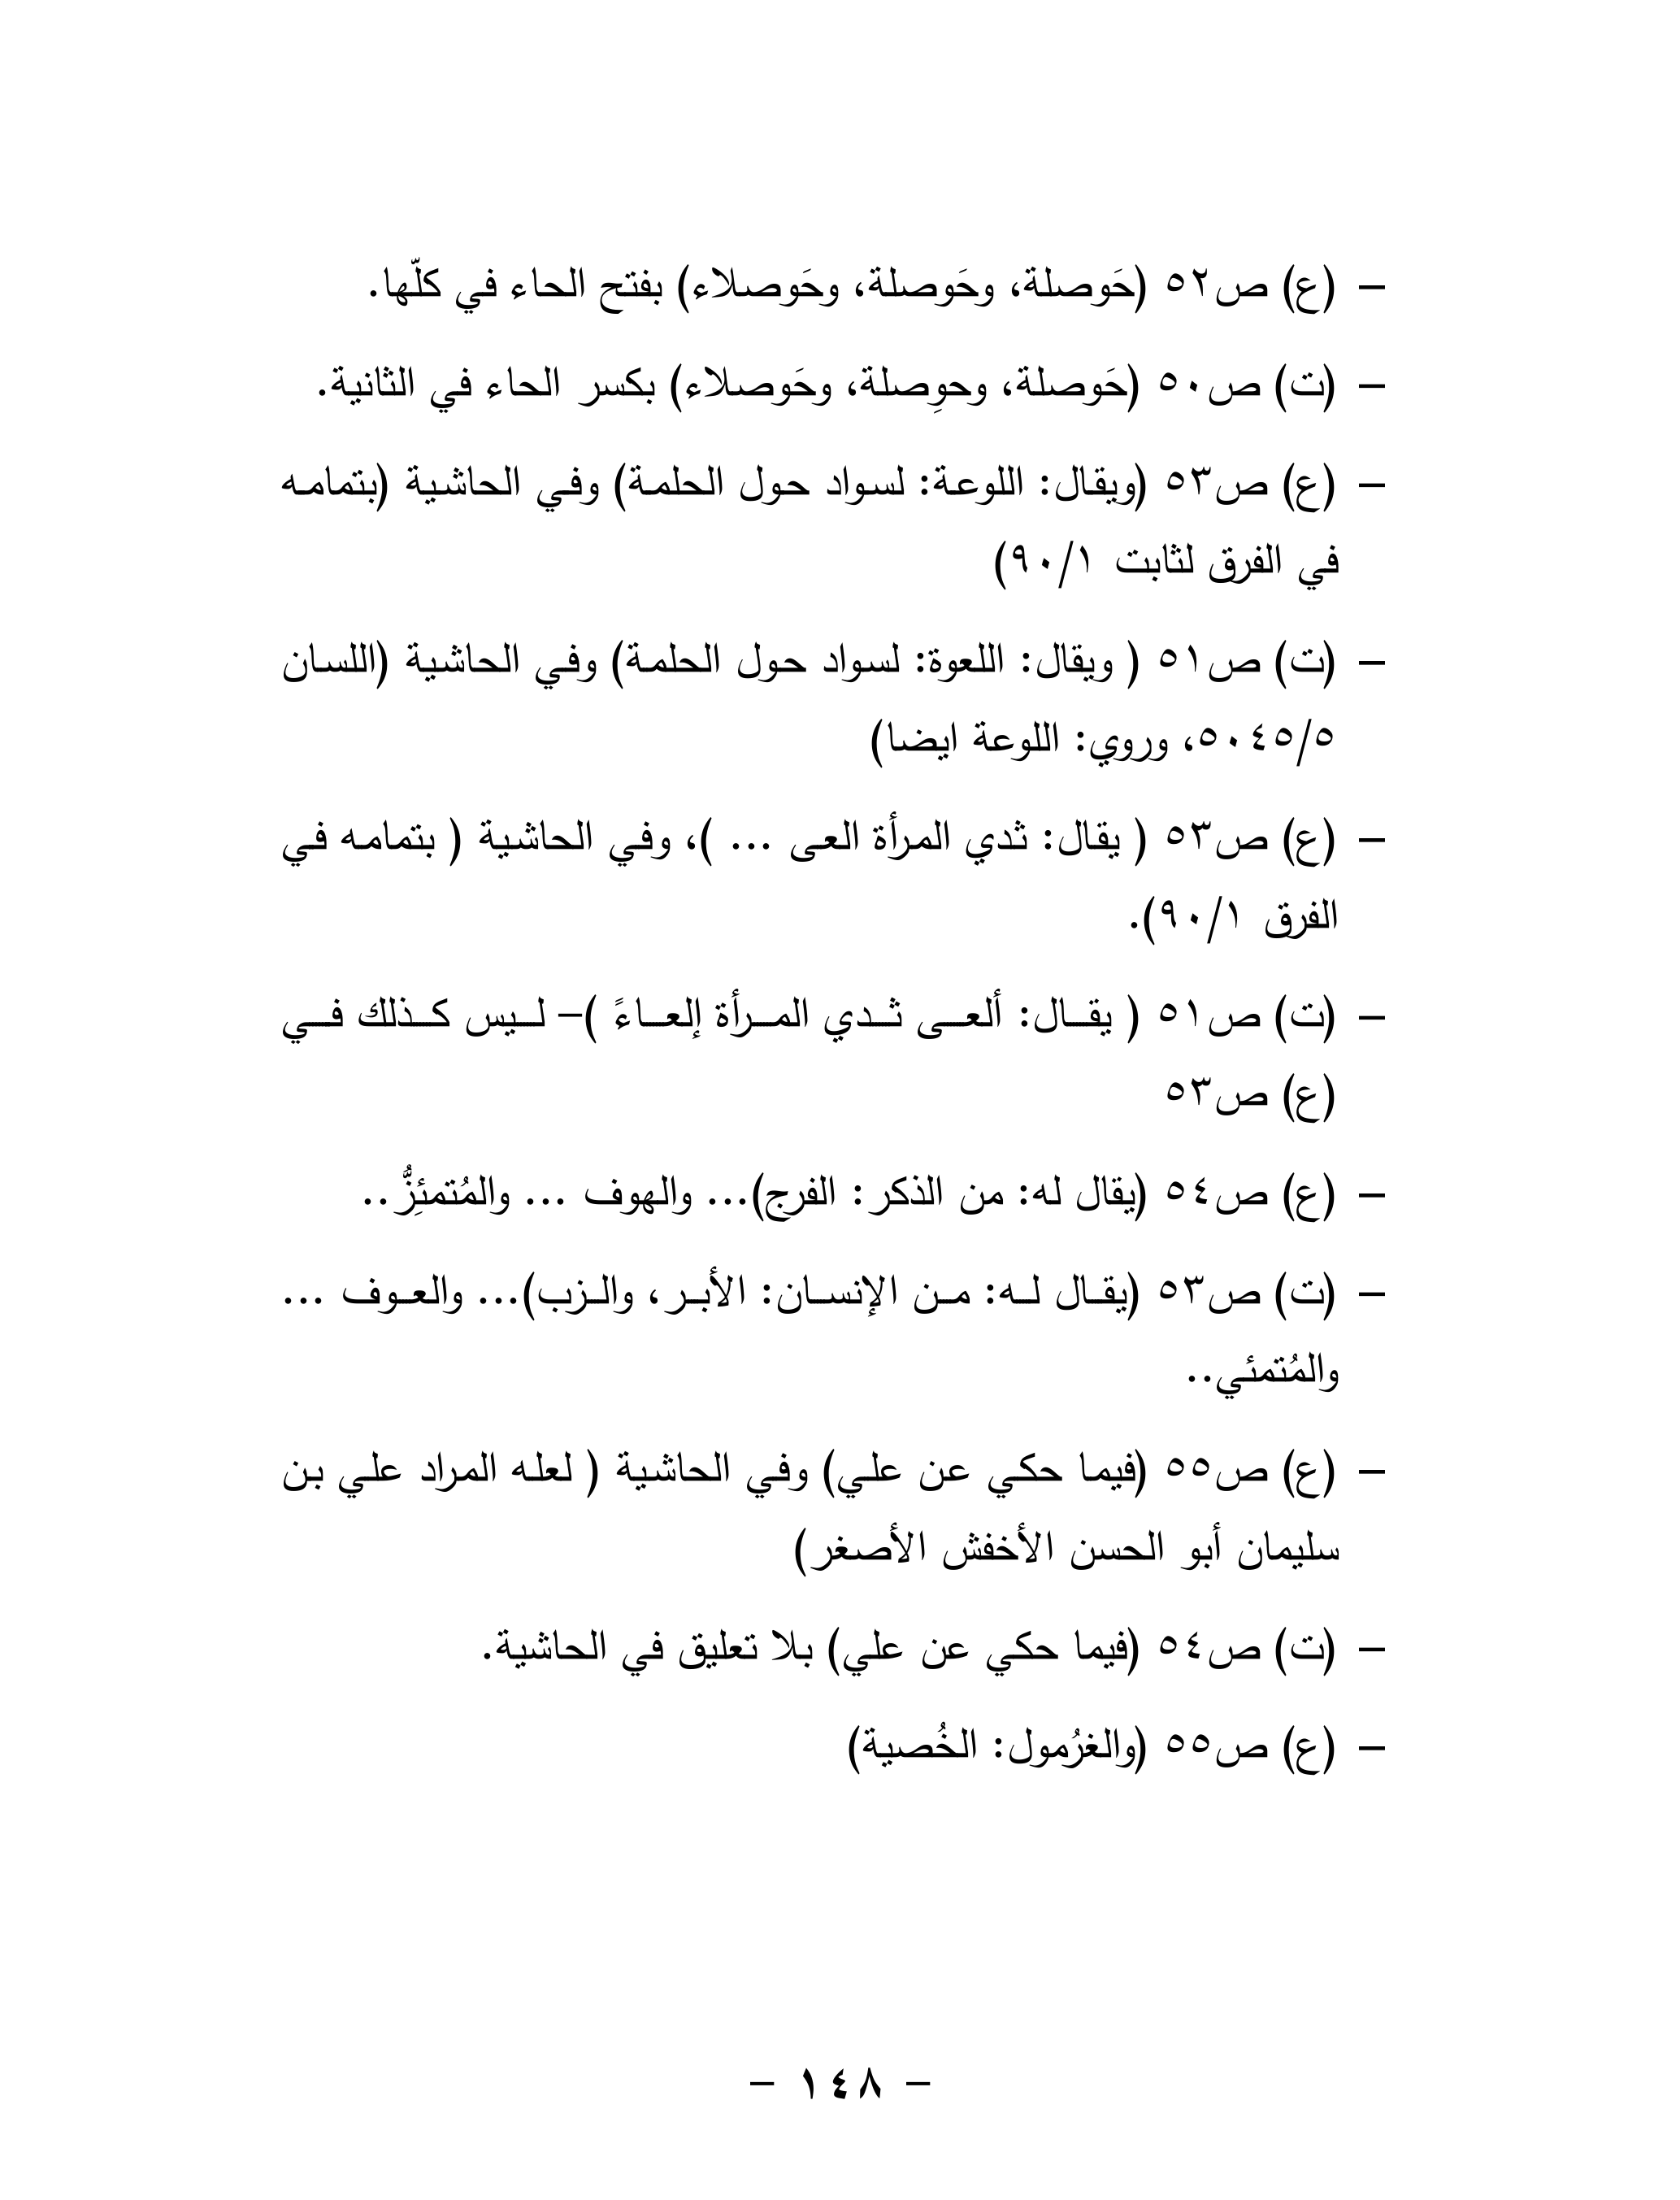 – (ع) ص٥٢ (حَوصلة، وحَوصلة، وحَوصلاء) بفتح الحاء في كلّها.
– (ت) ص٥٠ (حَوصلة، وحوِصلة، وحَوصلاء) بكسر الحاء في الثانية.
– (ع) ص٥٣ (ويقال: اللوعة: لسواد حول الحلمة) وفي الحاشية (بتمامه
في الفرق لثابت ٩٠/١)
– (ت) ص٥١ ( ويقال: اللعوة: لسواد حول الحلمة) وفي الحاشية (اللسان
٥٠٤٥/٥، وروي: اللوعة ايضا)
– (ع) ص٥٣ ( يقال: ثدي المرأة العى ... )، وفي الحاشية ( بتمامه في
الفرق ٩٠/١).
– (ت) ص٥١ ( يقال: ألعى ثدي المرأة إلعاءً )– ليس كذلك في
(ع) ص٥٣
– (ع) ص٥٤ (يقال له: من الذكر: الفرج)... والهوف ... والمُتمئِزُّ..
– (ت) ص٥٣ (يقال له: من الإنسان: الأبر، والزب)... والعوف ...
والمُتمئي..
– (ع) ص٥٥ (فيما حكي عن علي) وفي الحاشية ( لعله المراد علي بن
سليمان أبو الحسن الأخفش الأصغر)
– (ت) ص٥٤ (فيما حكي عن علي) بلا تعليق في الحاشية.
– (ع) ص٥٥ (والغرُمول: الخُصية)
– ١٤٨ –